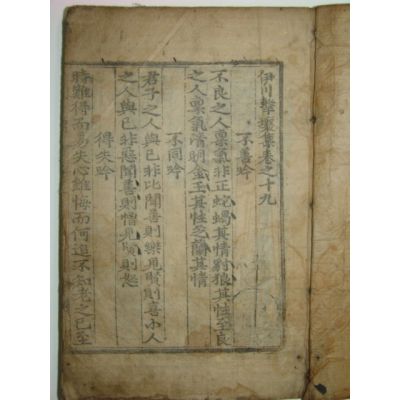 伊川擊壤集卷之十九
不善吟
不良之人稟氣非正蛇蝎其情豺狼其性至良
之人稟氣清明金玉其性芝蘭其情
不同吟
君子之人與己非比聞善則樂見賢則喜小人
之人與己非惡聞善則憎見賢則怒
得失吟
時難得而易失心雖悔而何追不知老之已至